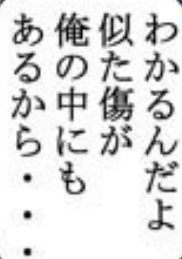 わかるんだよ
似た傷が
俺の中にも
あるから・・・